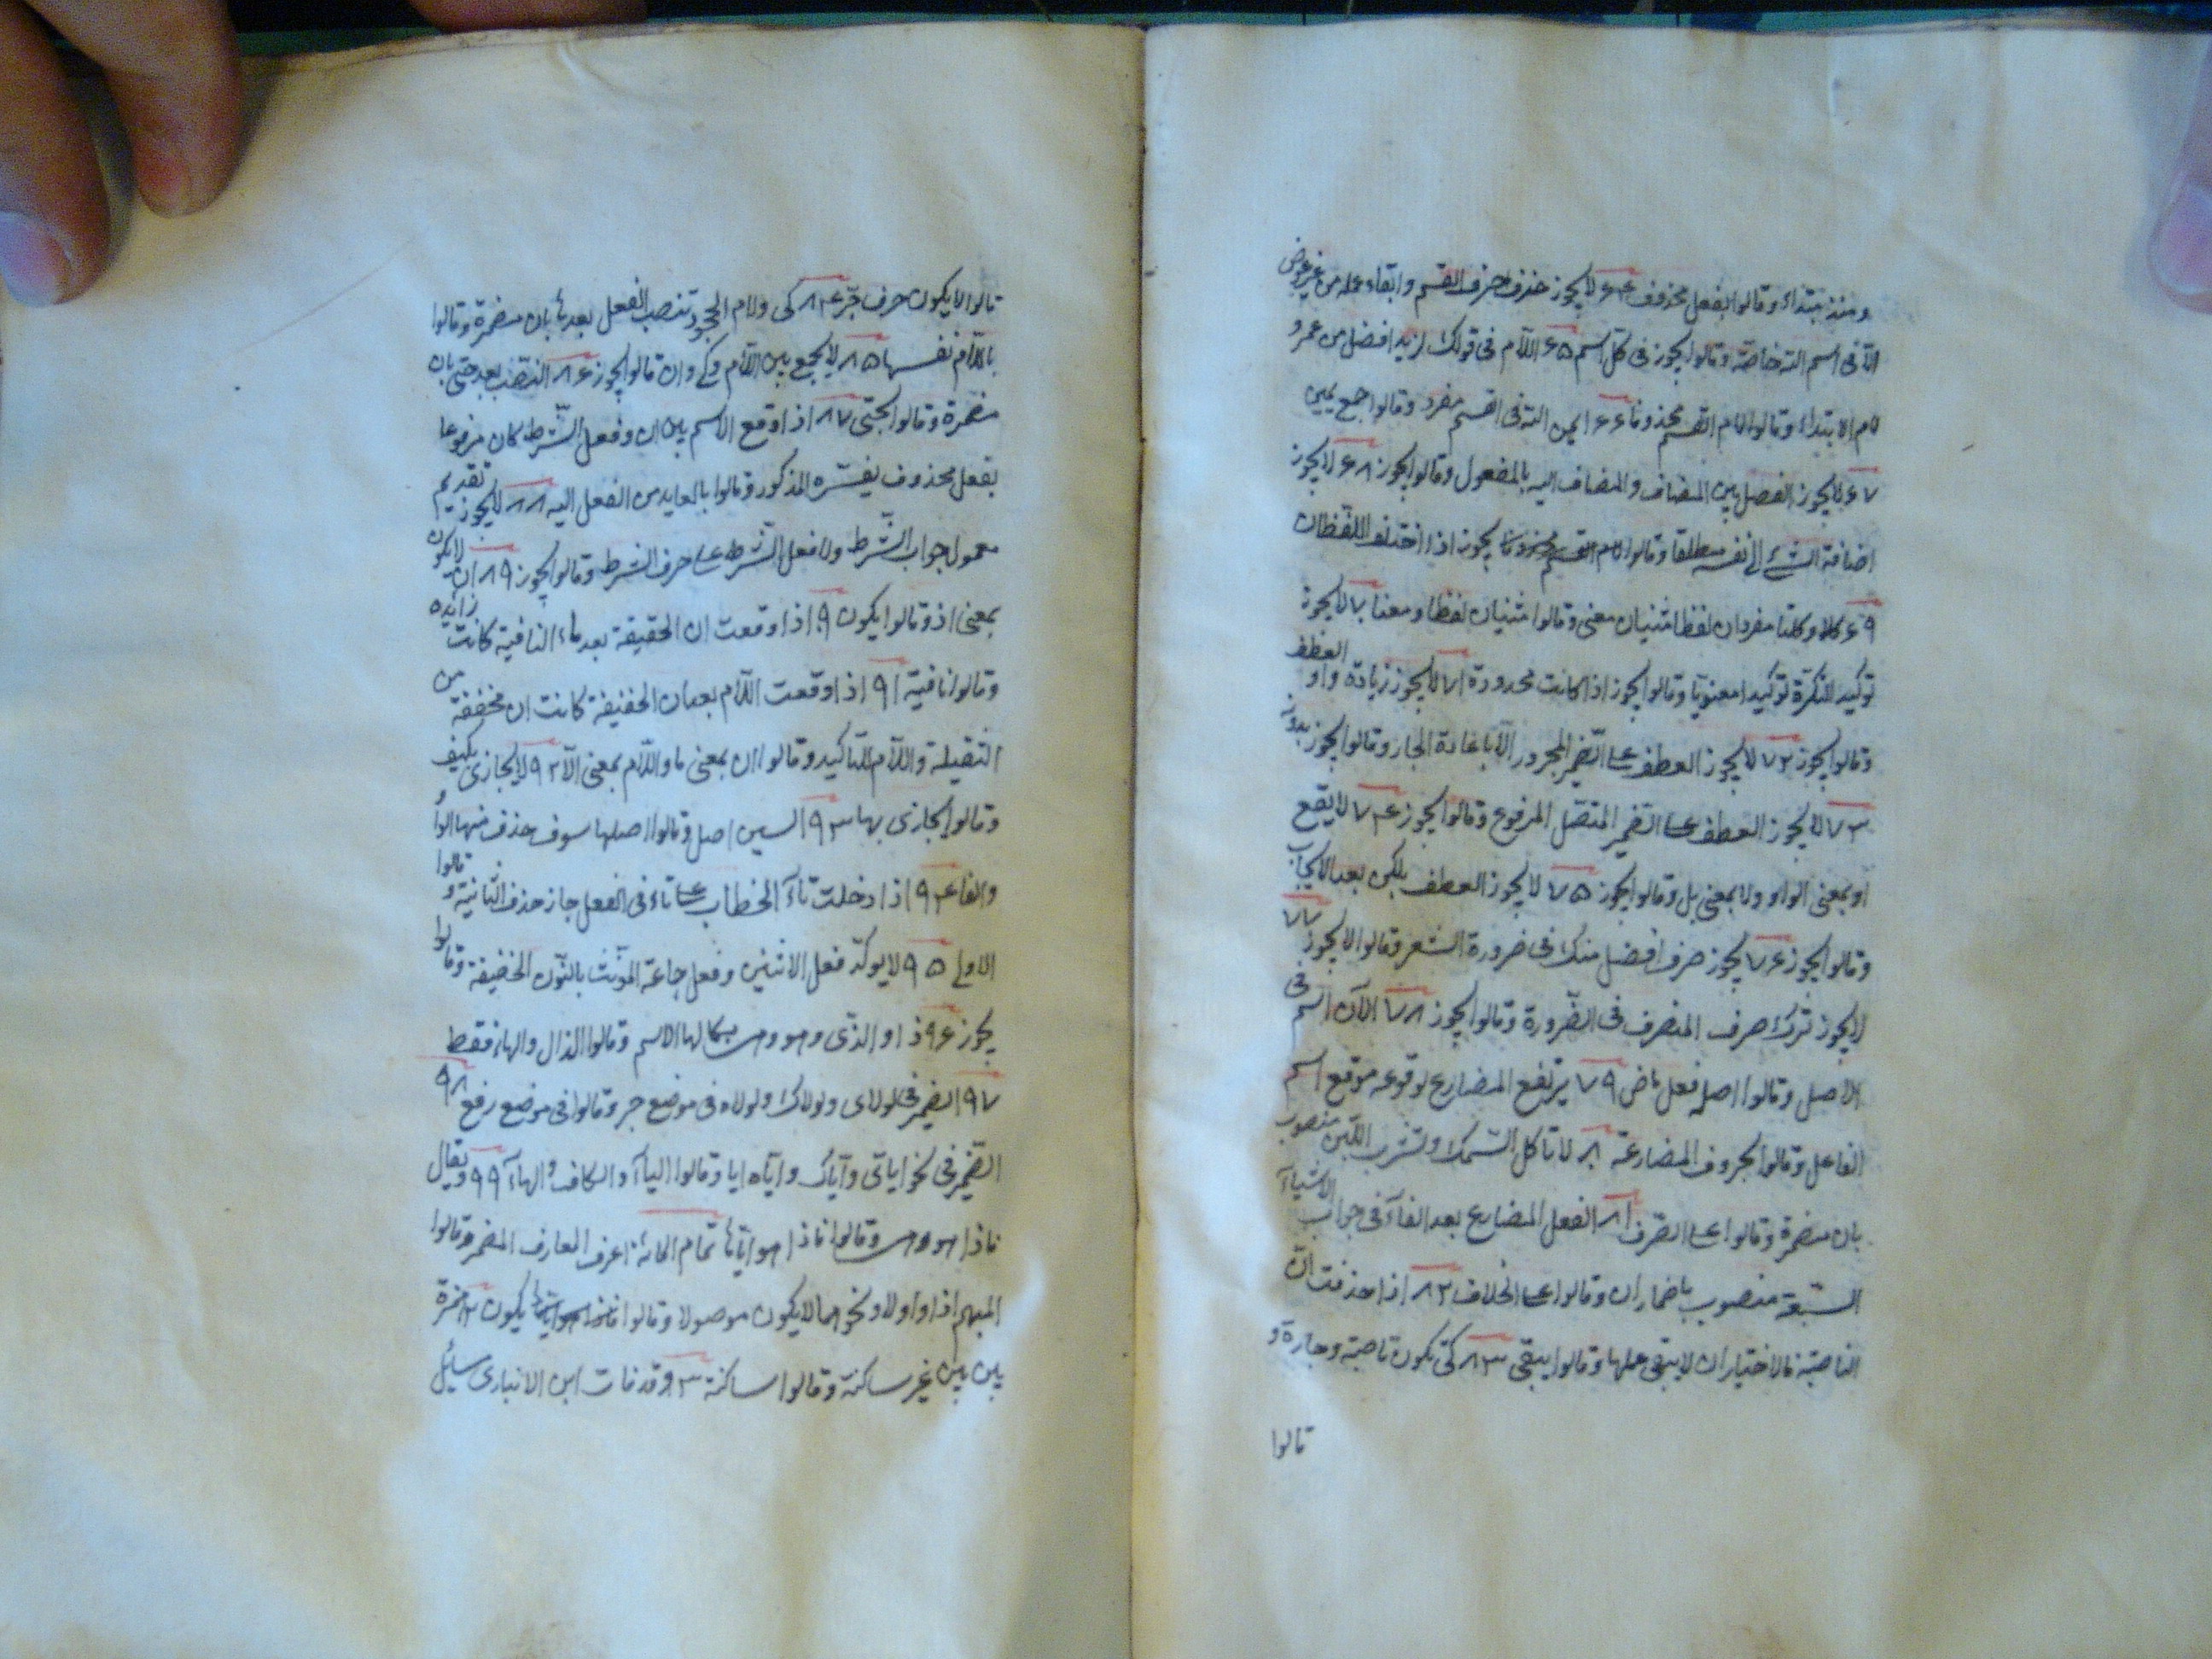 ومنذ مبتداء وقالوا بفعل محذوف ۶۴ لا يجوز حذف حرف القسم وابقاء عمله من غير عوض
الا فى اسم الله خاصة وقالوا يجوز فى كل اسم ۶۵ اللام فى قولك لزيد افضل من عمرو
لام الابتداء وقالوا لام القسم محذوفا ۶۶ ايمن الله فى القسم مفرد وقالوا جمع يمين
۶۷ لا يجوز الفصل بين المضاف والمضاف اليه بالمفعول وقالوا يجوز ۶۸ لا يجوز
اضافة الشئ الى نفسه مطلقا وقالوا يجوز اذا اختلف اللفظان
۶۹ كلا وكلتا مفردان لفظا مثنيان معنى وقالوا مثنيان لفظا ومعنا ۷۰ لا يجوز
توكيد النكرة توكيدا معنويا وقالوا يجوز اذا كانت محدودة ۷۱ لا يجوز زيادة واو العطف
وقالوا يجوز ۷۲ لا يجوز العطف على الضمير المجرور الا باعادة الجار وقالوا يجوز بدونه
۷۳ لا يجوز العطف على الضمير المتصل المرفوع وقالوا يجوز ۷۴ لا يقع
او بمعنى الواو ولا بمعنى بل وقالوا يجوز ۷۵ لا يجوز العطف بلكن بعد الايجاب
وقالوا يجوز ۷۶ يجوز صرف افضل منك فى ضرورة الشعر وقالوا لا يجوز ۷۷
لا يجوز ترك صرف المنصرف فى الضرورة وقالوا يجوز ۷۸ الآن اسم فى
الاصل وقالوا اصله فعل ماض ۷۹ يرتفع المضارع لوقوعه موقع اسم
الفاعل وقالوا بحروف المضارعة ۸۰ لا تاكل السمك وتشرب اللبن منصوب
بان مضمرة وقالوا على الصرف ۸۱ الفعل المضارع بعد الفآء فى جواب الاشياء
السبعة منصوب باضمار ان وقالوا على الخلاف ۸۲ اذا حذفت ان
الناصبة فالاختيار ان لا يبقى عملها وقالوا يبقى ۸۳ كى تكون ناصبة وجارة و
قالوا
قالوا لا يكون حرف جر ۸۴ كى ولام الجحود تنصب الفعل بعدها بان مضمرة وقالوا
باللام نفسها ۸۵ لا يجمع بين اللام وكى وان قالوا يجوز ۸۶ النصب بعد حتى بان
مضمرة وقالوا بحتى ۸۷ اذا وقع الاسم بين ان وفعل الشرط كان مرفوعا
بفعل محذوف يفسره المذكور وقالوا بالعايد من الفعل اليه ۸۸ لا يجوز تقديم
معمول جواب الشرط ولا فعل الشرط على حرف الشرط وقالوا يجوز ۸۹ ان لا يكون
بمعنى اذ وقالوا يكون ۹۰ اذا وقعت ان الخفيفة بعد ماء النافية كانت زائده
وقالوا نافية ۹۱ اذا وقعت اللام بعد ان الخفيفة كانت ان مخففة من
الثقيلة واللام للتاكيد وقالوا ان بمعنى ما واللام بمعنى الا ۹۲ لا يجازى بكيف
وقالوا يجازى بها ۹۳ السين اصل وقالوا اصلها سوف حذف منها الواو
والفا ۹۴ اذا دخلت تآء الخطاب على تاء فى الفعل جاز حذف الثانية وقالوا
الاولى ۹۵ لا يوكد فعل الاثنين وفعل جماعة المونث بالنون الخفيفة وقالوا
يجوز ۹۶ ذا والذى وهو وهى بكمالها الاسم وقالوا الذال والهاء فقط
۹۷ الضمير فى لولاى ولولاك ولولاه فى موضع جر وقالوا فى موضع رفع ۹۸
الضمير فى نحو اياى واياك واياه ايا وقالوا اليآء والكاف والهآء ۹۹ ويقال
فاذا هو هى وقالوا فاذا هو اياها تمام المائة اعرف المعارف المضمر وقالوا
المبهم ذا واولاء ونحوهما لا يكون موصولا وقالوا يكون ۲ همزة
بين بين غير ساكنة وقالوا ساكنة ۳ وقد فات ابن الانبارى مسائل